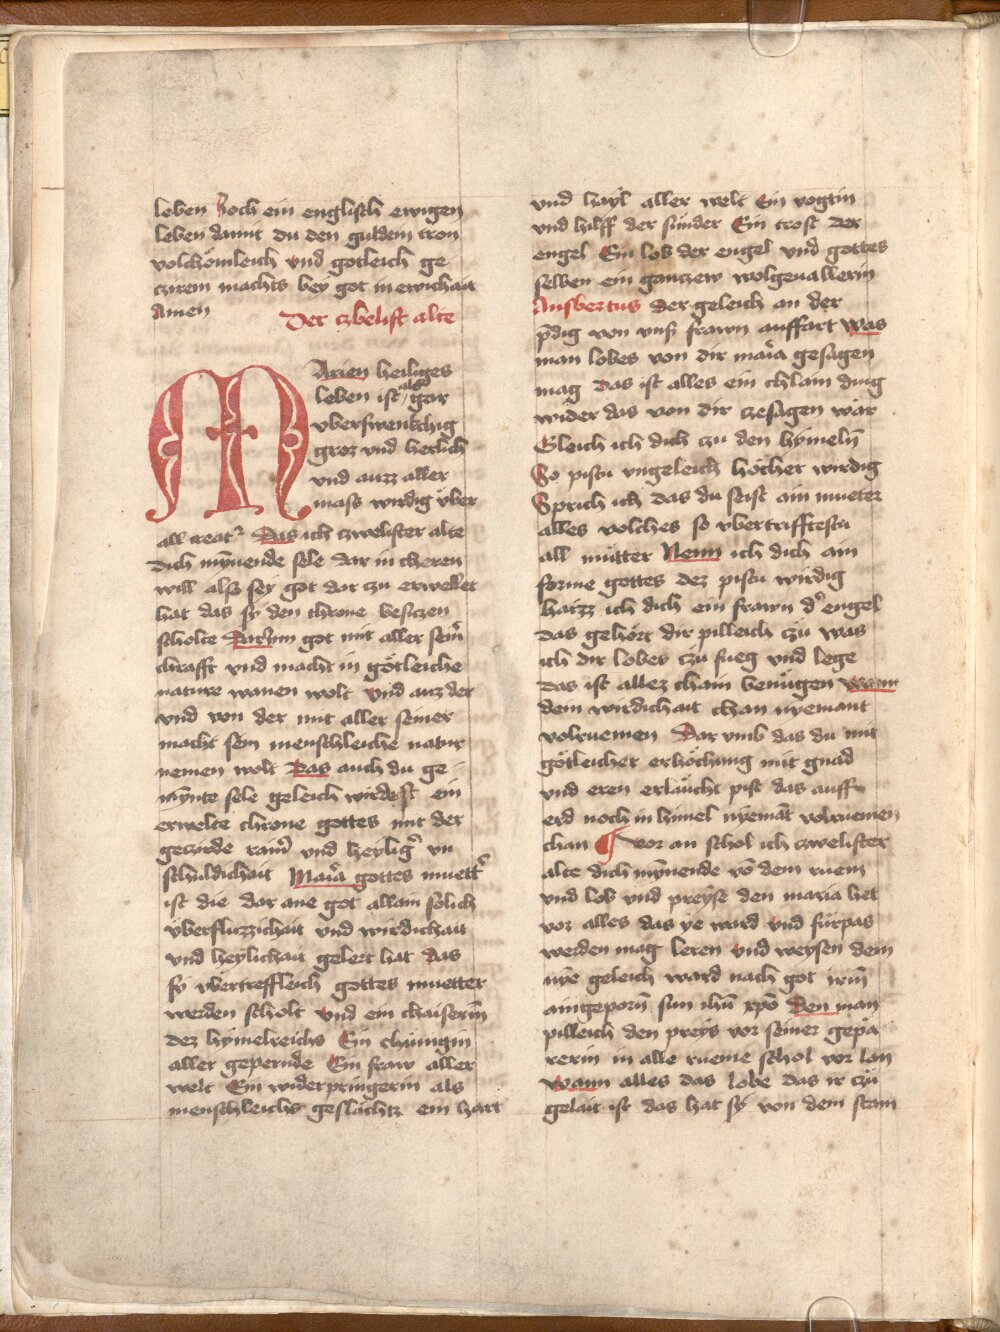 leben Joch ein englisch ewigen
leben damit du den guldem tron
volchömleich vnd gotleich ge
czirem machts bey got in ewichait
Amen
Der czbelift alte
MArien heiliges
leben ist also gar
vberswenkchig
groz vnd herlich
vnd auzz aller
mass wirdig vber
all creatᵉ Das ich czwelifter alte
dich mynende sele dar in cheren
will alss sey got dar czu erwellet
hat das sy den throne besiczen
scholte Darumb got mit aller seiner
chrafft vnd macht in götleiche
nature wanen wolt vnd auz der
vnd von der mit aller seiner
macht sein menschleiche natur
nemen wolt Das auch du ge
mynte sele geleich wirdest ein
erwelte throne gottes mit der
gezirde rainᵉ vnd heyligᵉ vn
schuldichait Maria gottes muettᵉ
ist die dar ane got allain solich
vberflizzichait vnd wirdichait
vnd heylichait gelert hat das
sy vbertreffleich gottes muetter
werden scholt vnd ein chaiserin
dez hymelreichs Ein chünigin
aller gepernde Ein fraw aller
welt Ein widerpringerin als
menschleichs geslächtz ein hart
vnd hayl aller welt Ein vogtin
vnd hilff der sünder Ein trost der
engel Ein lob der engel vnd gottes
selben ein ganczew wolgeuallerin
Ansbertus der geleich an der
p̄dig von vnss frawn auffart Was
man lobes von dir maria gesagen
mag das ist alles ein chlain ding
wider das von dir zesagen wär
Gleich ich dich czu den hymeln̄
So pistu vngeleich höcher wirdig
Sprich ich das du seist ain mueter
alles volches so vbertrifftestu
all mütter Nenn ich dich ain
forme gottes dez pistu wirdig
haizz ich dich ein frawn dᵉ engel
das gehört dir pilleich czü was
ich dir lobes czu fueg vnd lege
das ist allez chain benügen wann
dem wirdichait chan nyemant
volruemen Dar vmb das du mit
götleicher erhöchung mit gnad
vnd eren erlaücht pist das auff
erd noch in himel nyemāt volruemen
chan ¶ vor an schol ich czwelifter
alte dich mynende vō dem ruem
vnd lob vnd preyse den maria het
vor alles das ye ward vnd fürpas
werden mag leren vnd weysen dem
nye geleich ward nach got irm̄
aingeporn̄ sun ihū xpō Den man
pilleich den preys vor seiner gepä
rerin in alle rueme schol vor lan
wann alles das lobe das ir czü
gelait ist das hat sy von dem stam